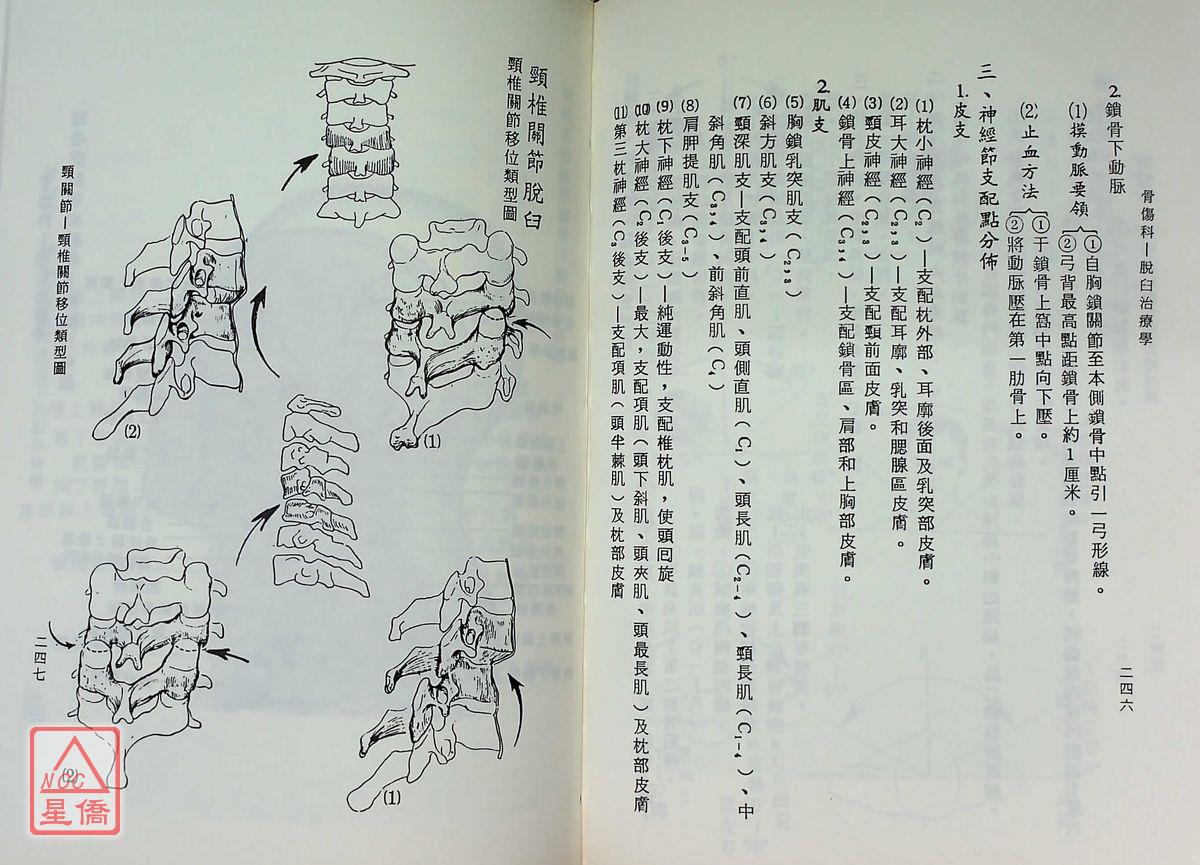 骨傷科—脫臼治療學
2.鎖骨下動脈
⑴摸動脈要領
①自胸鎖關節至本側鎖骨中點引一弓形線。
②弓背最高點距鎖骨上約1厘米。
⑵止血方法
①于鎖骨上窩中點向下壓。
②將動脉壓在第一肋骨上。
三、神經節支配點分佈
1.皮支
⑴枕小神經(C₂)—支配枕外部、耳廓後面及乳突部皮膚。
⑵耳大神經(C₂,₃)—支配耳廓、乳突和腮腺區皮膚。
⑶頸皮神經(C₂,₃)—支配頸前面皮膚。
⑷鎖骨上神經(C₃,₄)—支配鎖骨區、肩部和上胸部皮膚。
2.肌支
⑸胸鎖乳突肌支(C₂,₃)
⑹斜方肌支(C₃,₄)
⑺頸深肌支—支配頭前直肌、頭側直肌(C₁)、頭長肌(C₂₋₄)、頸長肌(C₁₋₄)、中
斜角肌(C₃,₄)、前斜角肌(C₄)
⑻肩胛提肌支(C₃₋₅)
⑼枕下神經(C₁後支)—純運動性,支配椎枕肌,使頭回旋
⑽枕大神經(C₂後支)—最大,支配項肌(頭下斜肌、頭夾肌、頭最長肌)及枕部皮膚
⑾第三枕神經(C₃後支)—支配項肌(頭半棘肌)及枕部皮膚
二四六
頸椎關節脫臼
頸椎關節移位類型圖
⑴
⑵
頸關節—頸椎關節移位類型圖
⑴
⑵
二四七
NCC
星僑